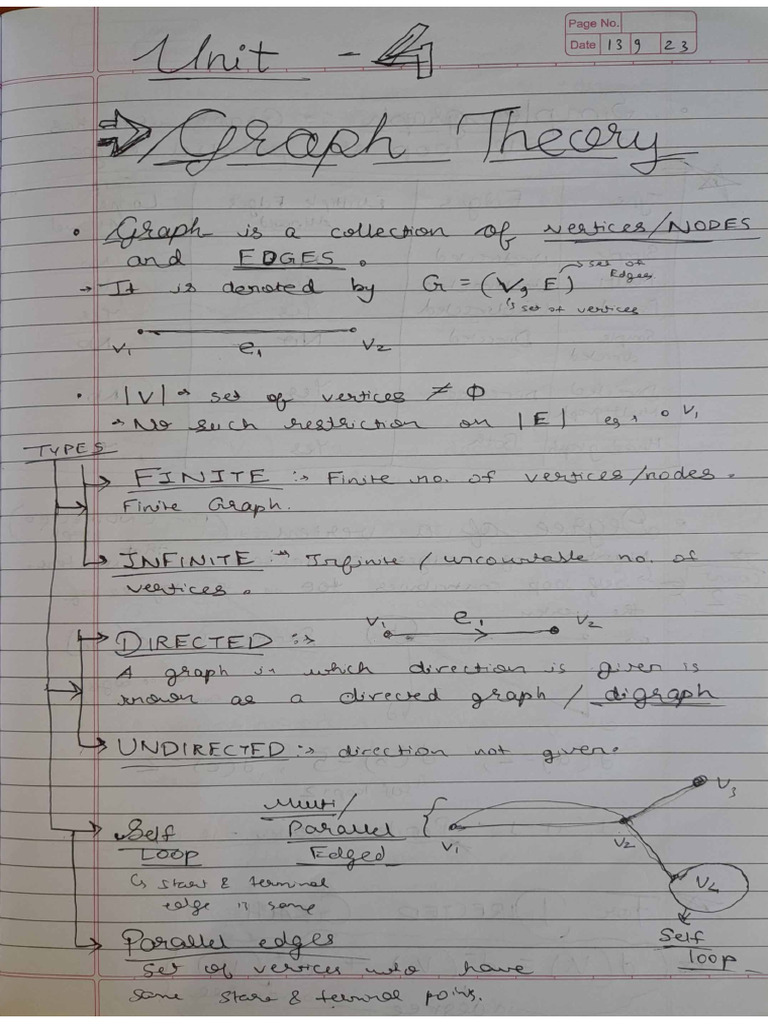 Page No.
Date 13 9 23
Unit - 4
⇒ Graph Theory
• Graph is a collection of vertices/NODES
and EDGES.
→ It is denoted by G = (V, E) → set of Edges
↳ set of vertices
V1 e1 V2
• |V| → set of vertices ≠ Φ
→ No such restriction on |E| eg → o V1
TYPES
→ FINITE :→ Finite no. of vertices/nodes.
Finite Graph.
→ INFINITE :→ Infinite / uncountable no. of
vertices.
V1 e1 V2
→ DIRECTED :→
A graph in which direction is given is
known as a directed graph / digraph
→ UNDIRECTED :→ direction not given.
→ Self Loop
Multi/ Parallel Edged
V1 V2 V3 V4
↳ start & terminal
edge is same
Self loop
→ Parallel edges
set of vertices who have
same start & terminal points.